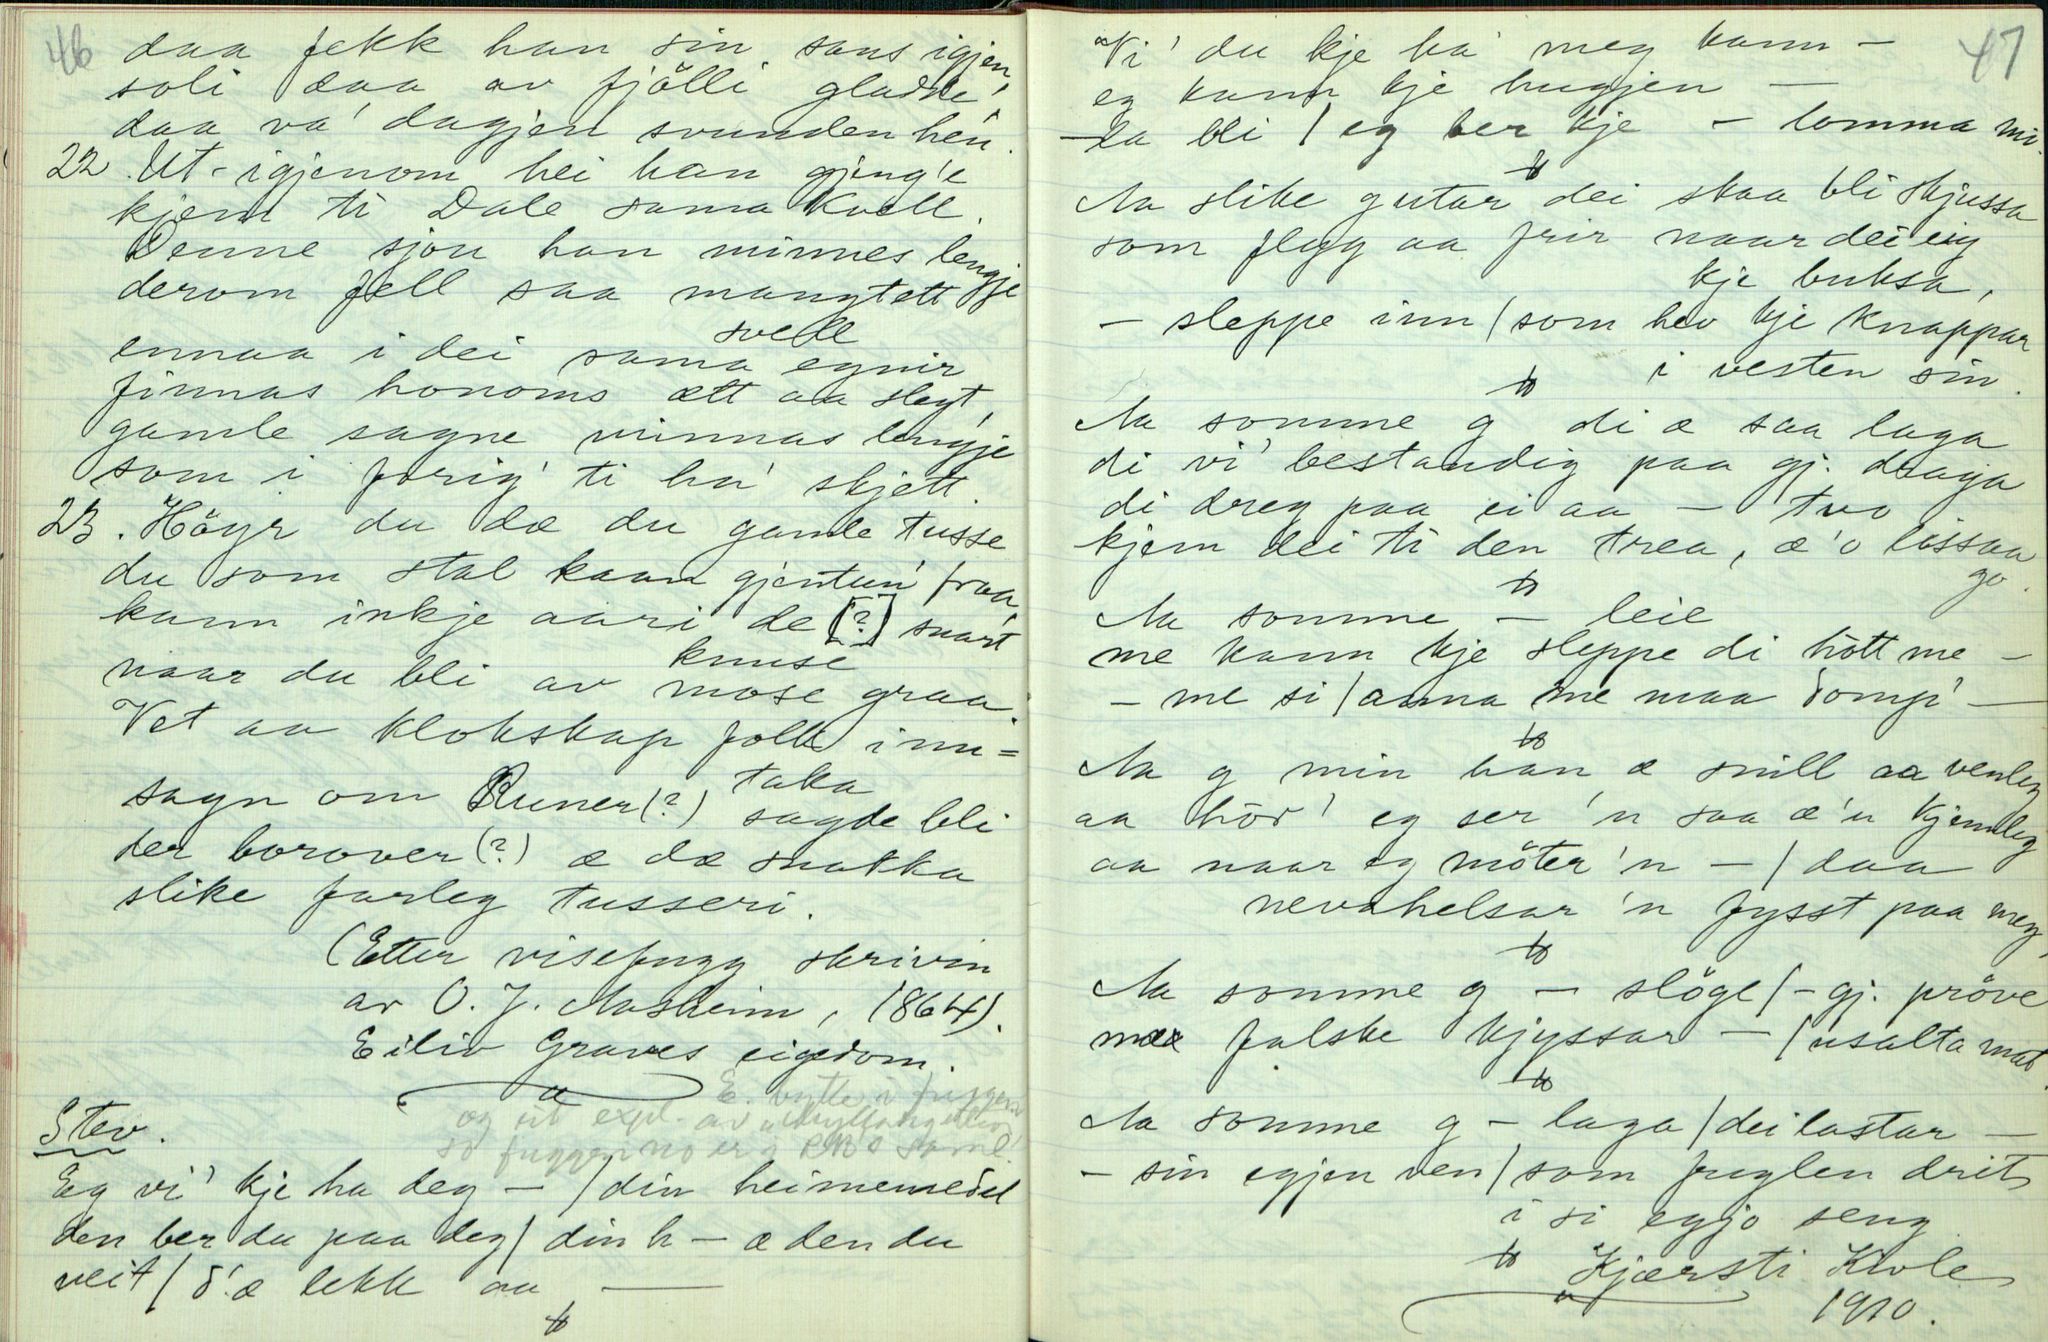 46
daa fekk han sin sans igjen,
soli daa av fjölli gladde,
daa va' dagjen svunden hen.
22. Ut-igjenom hei han gjeng'e
kjem ti Dale sama kvell.
Denne sjon han minnes lengje
derom fell saa mangt ett
svell
ennaa i dei sama egnir
finnas honoms ætt aa slegt,
gamle sagne minnas lengje
som i forig' ti ha' skjett.
23. Höyr du dæ du gamle tusse
du som stal kaan gjentun' fraa,
kann inkje aari de [?] snart
knuse
naar du bli av mose graa.
Vet aa klokskap folk inn=
taka
sagn om Runer (?) sagde bli
der borover (?) æ dæ snakka
slike farleg tusseri.
(Etter visefugg skrivin
av O. J. Aasheim, 1864).
Eiliv Graves eigedom.
E. bytte i fuggen
og eit expl. av
so fuggen no er i RBs saml.
Stev.
Eg vi' kje ha deg – / din heimemedel
den ber du paa deg / din h – æ den du
veit / d'æ lekk aa —
47
"Vi' du kje ha' meg kann –
eg kann kje hugjen –
– la bli / eg ber kje – lomma mi.
Aa slike gutar dei skaa bli skjussa
som flyg aa frir naar dei eig
kje buksa,
– sleppe inn / som hev kje knappar
i vesten sin.
Aa somme g di æ saa laga
di vi' bestandig paa gj. draga
di dreg paa ei aa – tvo
kjem dei ti den trea, æ'o lissaa
go.
Aa somme – leie
me kann kje sleppe di hött me –
– me si / anna me maa
Aa g min han æ snill aa venleg
aa hör' eg ser 'n saa æ'n kjenleg
aa naar eg möter 'n – / daa
nevahelsar 'n fysst paa meg,
Aa somme g – slöge / – gj. pröve
mæ falske kjyssar – / usalta mat.
Aa somme g – laga / dei lastar –
– sin egjen ven / som fuglen drit
i si eggjo seng
Kjærsti Kivle
1910.